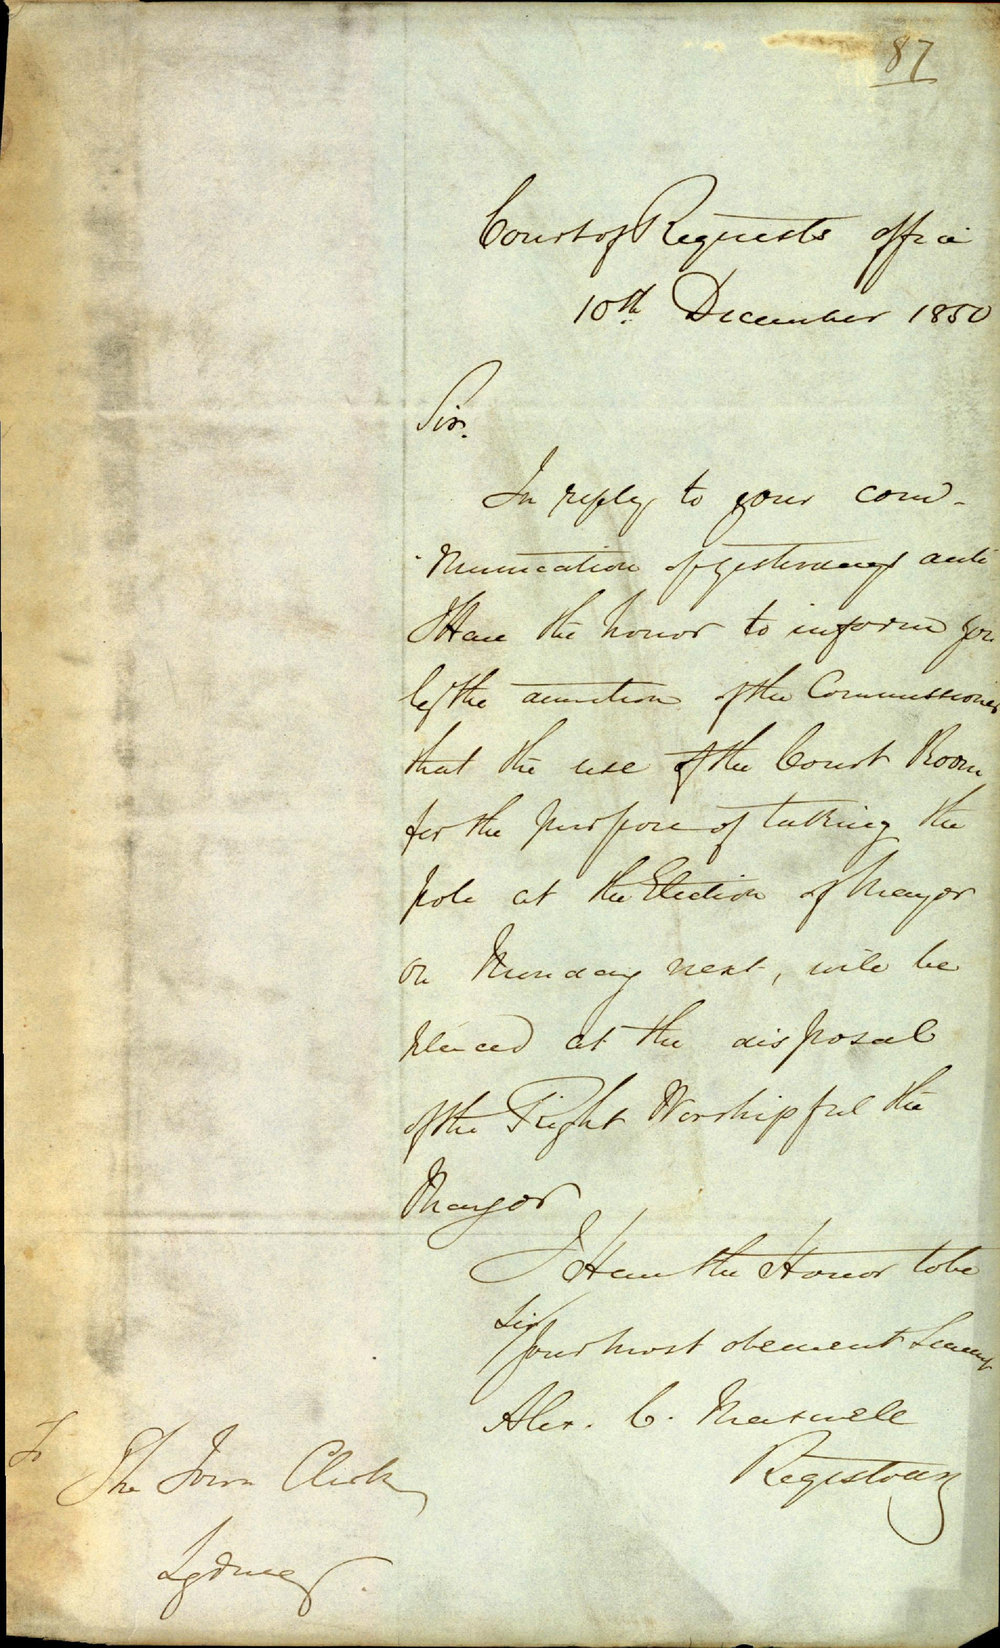 87
Court of Requests Office
10th December 1850
Sir.
In reply to your com-
munication of yesterdays date
I Have the honor to inform you
by the direction of the Commissioner
that the use of the Court Room
for the purpose of taking the
pole at the Election of Mayor
on Munday next, will be
placed at the disposal
of the Right Worshipful the
Mayor
I Have the Honor to be
Sir
Your most obedient Servant
Alex. C. Maxwell
Registrar
To
The Town Clerk
Sydney.